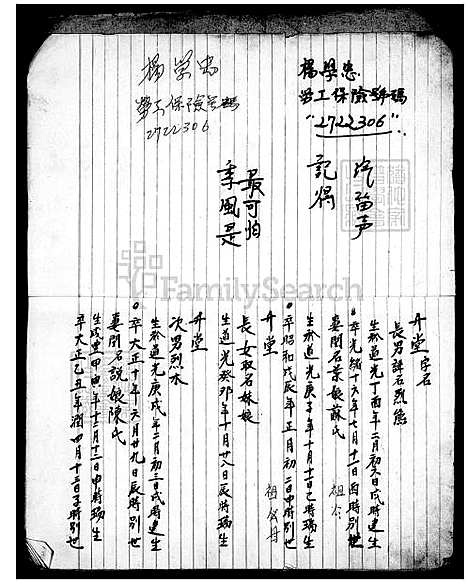 楊學忠
勞工保險號碼
"2722306"
汽笛声
記獨
最可怕
季風是
楊學忠
勞工保險号碼
2722306
FamilySearch
升堂字名
長男諱名烈態
生於道光丁酉年二月初六日戌時建生
卒光緒十六年七月十一日酉時別世
妻閨名葉娘蘇氏 祖
生於道光庚子年十月十一日巳時瑞生
卒昭和戊辰年正月初二日申時別世
升堂 祖公母
長女取名妹娘
生道光癸卯年十月廿八日辰時瑞生
升堂
次男烈水
生於道光庚戌年二月初三日戌時建生
卒大正十年六月廿九日辰時別世
妻閨名說娘陳氏
生咸豐甲寅年十二月十二日申時瑞生
卒大正乙丑年潤四月十三日子時別世